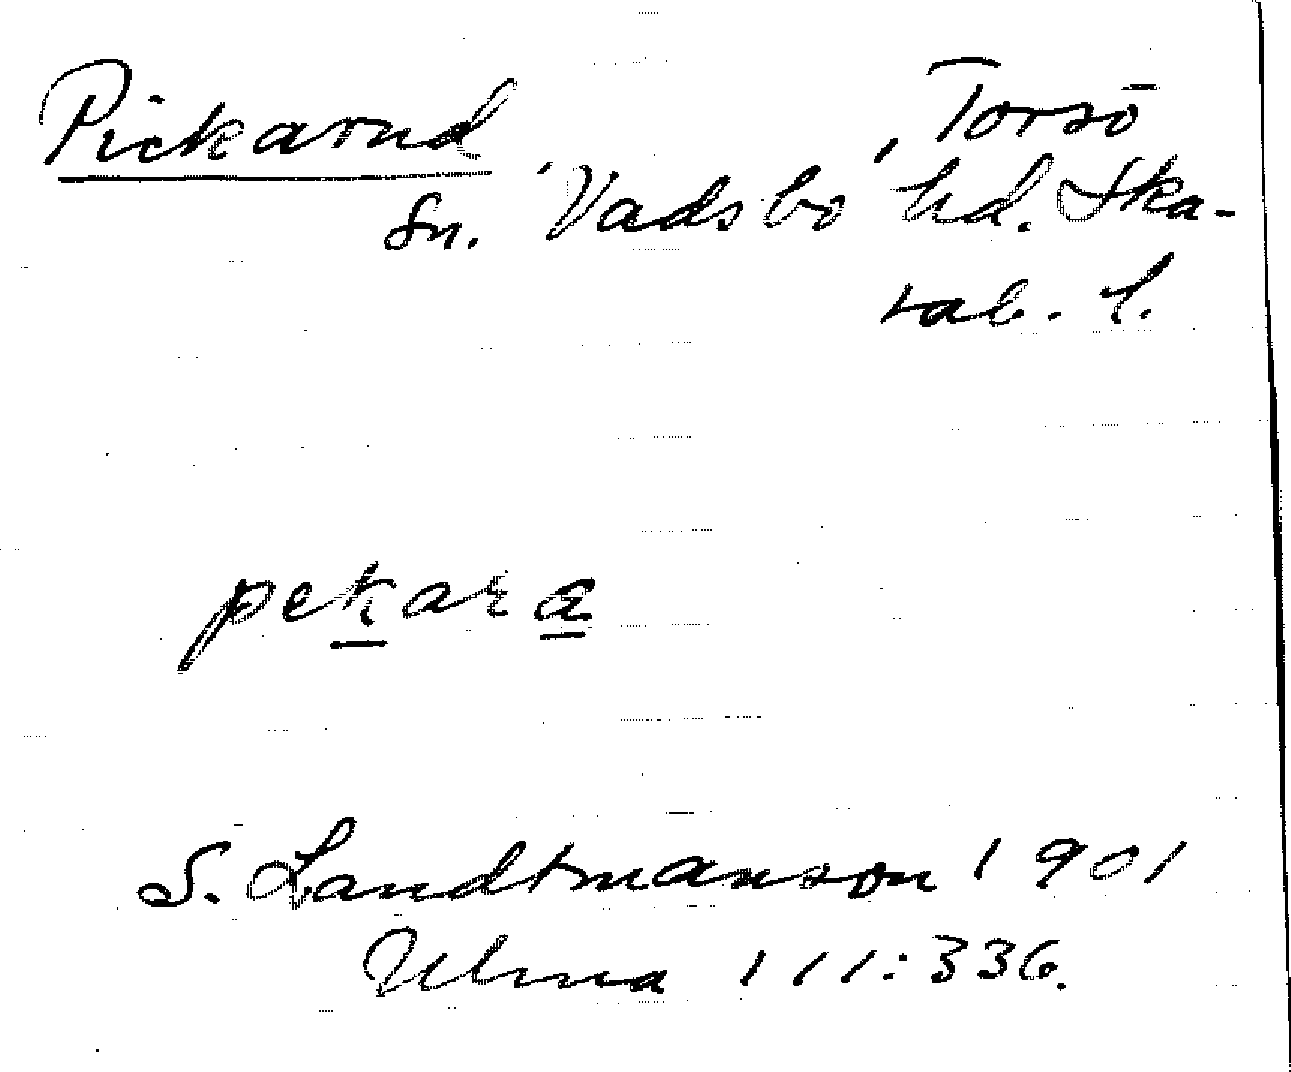 Pickarud , Torsö
Sn. Vadsbo hd. Ska-
rab. l.
pekara
S. Landtmanson 1901
Ulma 111:336.